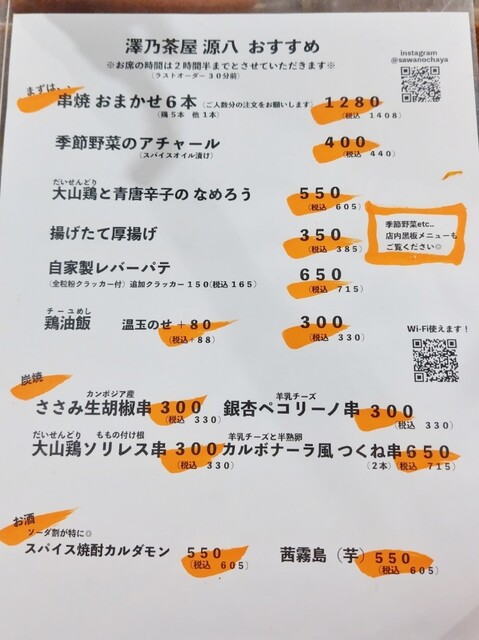 澤乃茶屋 源八 おすすめ
※お席の時間は2時間半までとさせていただきます※
(ラストオーダー30分前)
instagram
@sawanochaya
まずは、、
串焼 おまかせ6本 (ご人数分の注文をお願いします) 1280
(鶏5本 他1本) (税込 1408)
季節野菜のアチャール 400
(スパイスオイル漬け) (税込 440)
だいせんどり
大山鶏と青唐辛子の なめろう 550
(税込 605)
季節野菜etc..
店内黒板メニューも
ご覧ください◎
揚げたて厚揚げ 350
(税込 385)
自家製レバーパテ 650
(全粒粉クラッカー付) 追加クラッカー150(税込165) (税込 715)
チーユめし
鶏油飯 温玉のせ +80 300
(税込+88) (税込 330)
Wi-Fi使えます!
炭焼
カンボジア産 羊乳チーズ
ささみ生胡椒串 300 銀杏ペコリーノ串 300
(税込 330) (税込 330)
だいせんどり ももの付け根 羊乳チーズと半熟卵
大山鶏ソリレス串 300 カルボナーラ風 つくね串 650
(税込 330) (2本) (税込 715)
お酒
ソーダ割が特に◎
スパイス焼酎カルダモン 550 茜霧島(芋) 550
(税込 605) (税込 605)